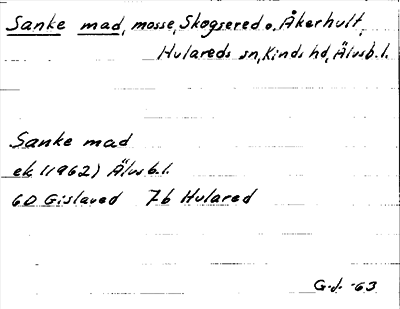 Sanke mad, mosse, Skogsered o. Åkerhult,
Hulareds sn, Kinds hd, Älvsb. l.
Sanke mad
ek (1962) Älvsb. l.
6D Gislaved 7b Hulared
G. J. -63